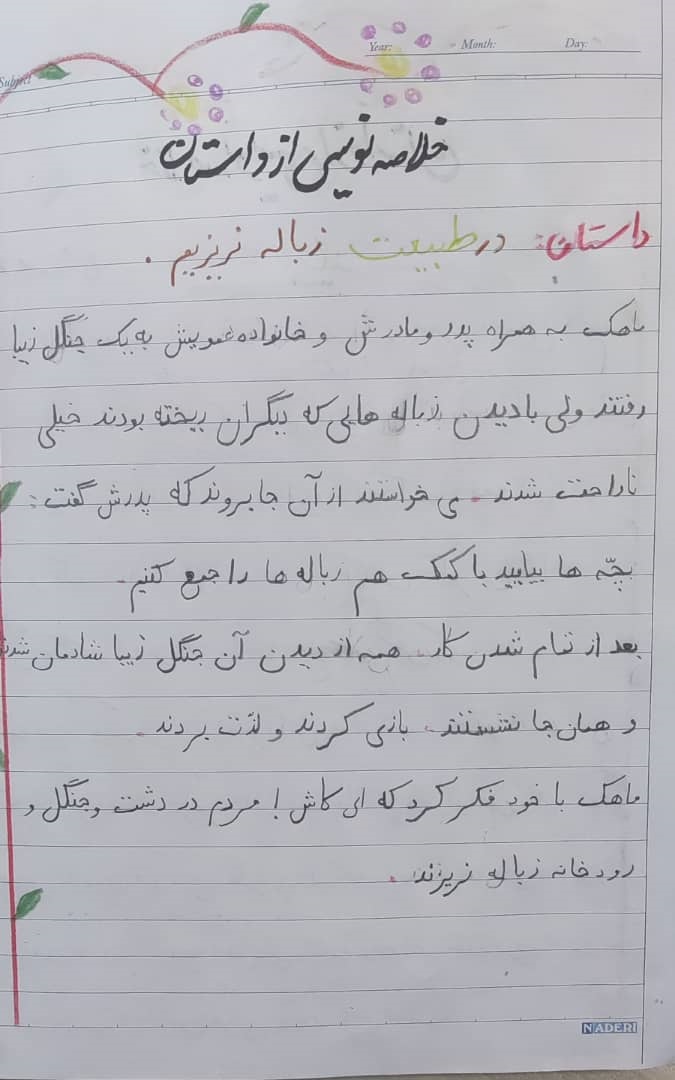 Subject
Year: Month: Day:
خلاصه نویسی از داستان
داستان: در طبیعت زباله نریزیم.
ماهک به همراه پدر و مادرش و خانواده عمویش به یک جنگل زیبا
رفتند ولی با دیدن زباله هایی که دیگران ریخته بودند خیلی
ناراحت شدند. می خواستند از آن جا بروند که پدرش گفت:
بچّه ها بیایید با کمک هم زباله ها را جمع کنیم.
بعد از تمام شدن کار، همه از دیدن آن جنگل زیبا شادمان شدند
و همان جا نشستند، بازی کردند و لذّت بردند.
ماهک با خود فکر کرد که ای کاش! مردم در دشت و جنگل و
رودخانه زباله نریزند.
NADERI